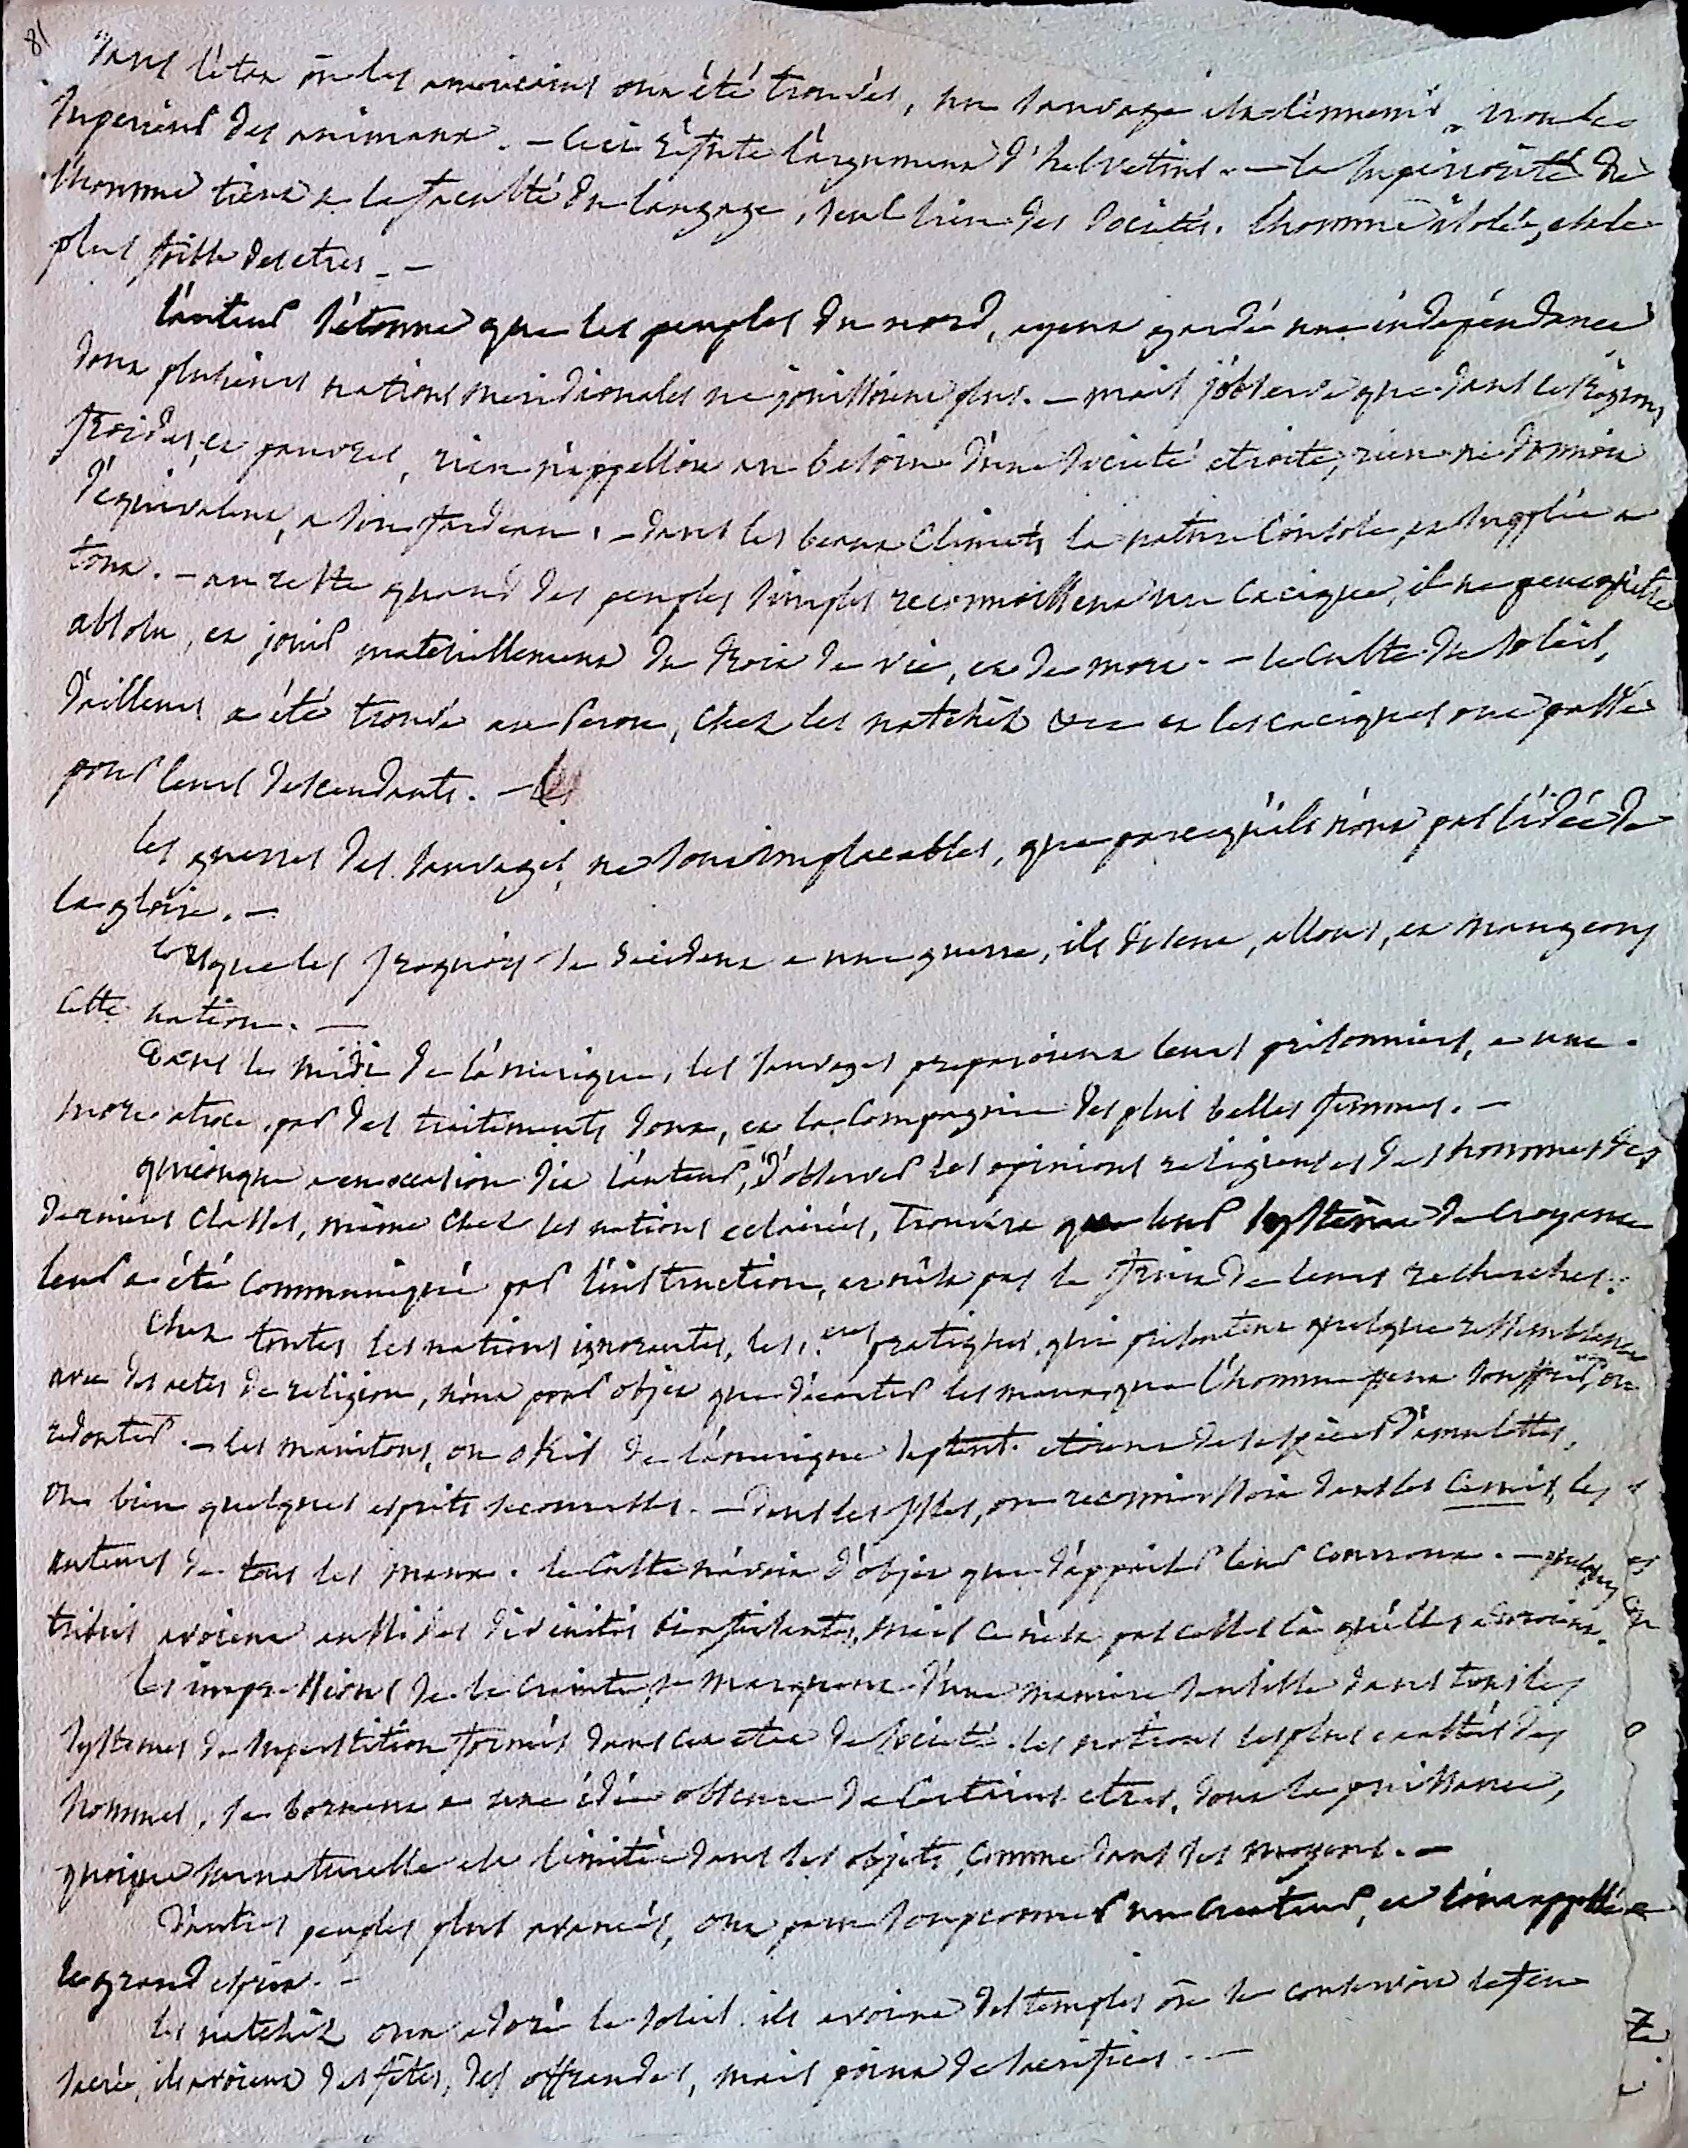 81
Dans l'état où les américains ont été trouvés, un sauvage est l'ennemi, non le
superieur des animaux. – Ceci réfute l'argument d'helvetius. – la supériorité de
l'homme tient a la faculté du langage, seul lien des sociétés. l'homme isolé, est le
plus foible des etres. –
l'auteur s'étonne que les peuples du nord, ayent gardé une indépendance
dont plusieurs nations méridionales ne jouissoient plus. – mais j'observe que dans les régions
froides, et pauvres, rien n'appelloit au besoin d'une societé etroite, rien ne donnoit
d'équivalent, a son fardeau. – dans les beaux climats la nature console, et supplée a
tout. – au reste quand des peuples simples reconnoissent un cacique, il ne peut qu'être
absolu, et jouir matériellement du droit de vie, et de mort. – le culte du soleil,
d'ailleurs a été trouvé au Perou, chez les natchéz &c et les caciques ont passé
pour leurs descendants. –
les guerres des sauvages, ne sont implacables, que parcequ'ils n'ont pas l'idée de
la gloire. –
lorsque les Iroquois se décident a une guerre, ils disent, allons, et mangeons
cette nation. –
Dans le midi de l'amérique, les sauvages preparoient leurs prisonniers, a une
mort atroce, par des traitements doux, et la compagnie des plus belles femmes. –
quiconque a eu occasion dit l'auteur, d'observer les opinions religieuses des hommes des
derniers classes, même chez les nations eclairées, trouvera que leur systême de croyance
leur a été communiqué par l'instruction, et n'est pas le fruit de leurs recherches.
Chez toutes les nations ignorantes, les pratiques, qui présentent quelque ressemblance
avec des actes de religion, n'ont pour objet que d'écarter les maux que l'homme peut souffrir, ou
redouter. – les manitous, ou okis de l'amérique sept. etoient des espèces d'amulettes,
ou bien quelques esprits secourables. – Dans les Isles, on reconnoissoit dans les Cemis, les
auteurs de tous les maux. le culte n'avoit d'objet que d'appaiser leur courroux. – quelques
tribus avoient aussi des divinités bienfaisantes, mais ce n'est pas celles là qu'elles adoroient.
les impressions de la crainte, se marquent d'une maniere sensible dans tous les
systemes de superstition formés dans cet etat de société. les notions les plus exaltées des
hommes, se bornent a une idée obscure de certains etres, dont la puissance,
quoique surnaturelle est limitée dans ses objets, comme dans ses moyens. –
d'autres peuples plus avancés, ont paru soupçonner un createur, et l'ont appellé
le grand esprit. –
les natchéz ont adoré le soleil. ils avoient des temples où se conservoit le feu
sacré, ils avoient des fêtes, des offrandes, mais point de sacrifices. –